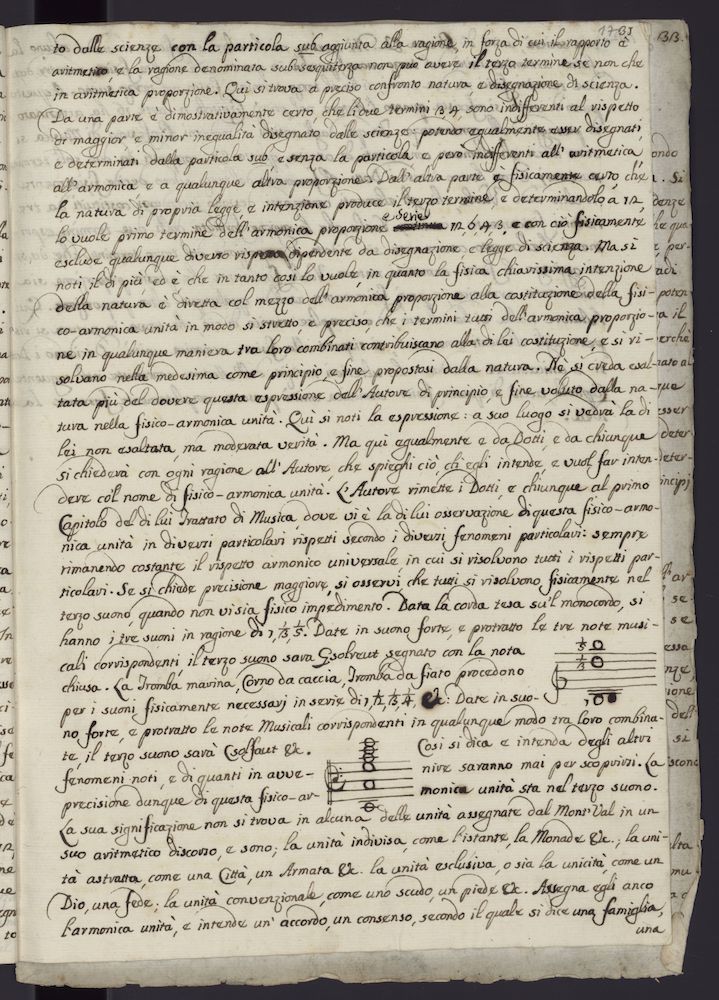 1731
to dalle scienze con la particola sub aggiunta alla ragione, in forza di cui il rapporto è
aritmetico e la ragione denominata subsesquiterza non può avere il terzo termine se non che
in aritmetica proporzione. Qui si trova a preciso confronto natura e disegnazione di scienza.
Da una parte è dimostrativamente certo, che li due termini 3, 4, sono indifferenti al rispetto
di maggior e minor inequalità disegnato dalle scienze: potendo egualmente esser disegnati,
e determinati dalla particola sub, e senza la particola, e però indifferenti all' aritmetica
all'armonica e a qualunque altra proporzione. Dall'altra parte è fisicamente certo, che
la natura di propria legge, e intenzione produce il terzo termine, e determinandolo a 12,
lo vuole primo termine dell'armonica proporzione Serie 12, 6, 4, 3, e con ciò fisicamente
esclude qualunque diverso rispetto dipendente da disegnazione e legge di scienza. Ma si
noti il di più, ed è che in tanto così lo vuole, in quanto la fisica chiarissima intenzione
della natura è diretta col mezzo dell'armonica proporzione alla costituzione della fisi-
co-armonica unità in modo sì stretto, e preciso, che i termini tutti dell'armonica proporzio-
ne in qualunque maniera tra loro combinati contribuiscano alla di lei costituzione, e si ri-
solvano nella medesima come principio, e fine propostosi dalla natura. Nè si creda esal-
tata più del dovere questa espressione dell'Autore di principio, e fine voluto dalla na-
tura nella fisico-armonica unità. Qui si noti la espressione: a suo luogo si vedrà la di
lei non esaltata, ma moderata verità. Ma qui egualmente e da Dotti, e da chiunque
si chiederà con ogni ragione all'Autore, che spieghi ciò, ch'egli intende, e vuol far inten-
dere col nome di fisico-armonica unità. L'Autore rimette i Dotti, e chiunque al primo
Capitolo del di lui Trattato di Musica, dove vi è la di lui osservazione di questa fisico-armo-
nica unità in diversi particolari rispetti secondo i diversi fenomeni particolari: sempre
rimanendo costante il rispetto armonico universale, in cui si risolvono tutti i rispetti par-
ticolari. Se si chiede precisione maggiore, si osservi, che tutti si risolvono fisicamente nel
terzo suono, quando non vi sia fisico impedimento. Data la corda tesa su'l monocordo, si
hanno i tre suoni in ragione di 1, 1/3, 1/5. Date in suono forte, e protratto le tre note musi-
cali corrispondenti, il terzo suono sarà Gsolreut segnato con la nota
chiusa. La Tromba marina, Corno da caccia, Tromba da fiato procedono
per i suoni fisicamente necessarj in serie di 1, 1/2, 1/3, 1/4, &c: Date in suo-
1/5
1/3
1,
no forte, e protratto le note Musicali corrispondenti in qualunque modo tra loro combina-
te, il terzo suono sarà Csolfaut &c. Così si dica e intenda degli altri
fenomeni noti, e di quanti in avve- nire saranno mai per scoprirsi. La
precisione dunque di questa fisico-ar- monica unità sta nel terzo suono.
La sua significazione non si trova in alcuna delle unità assegnate dal Mont'Val in un
suo aritmetico discorso, e sono; la unità indivisa, come l'istante, la Monade &c.; la uni-
tà astratta, come una Città, un Armata &c. la unità esclusiva, o sia la unicità, come un
Dio, una fede; la unità convenzionale, come uno scudo, un piede &c. Assegna egli anco
l'armonica unità, e intende un' accordo, un consenso, secondo il quale si dice una famiglia,
una